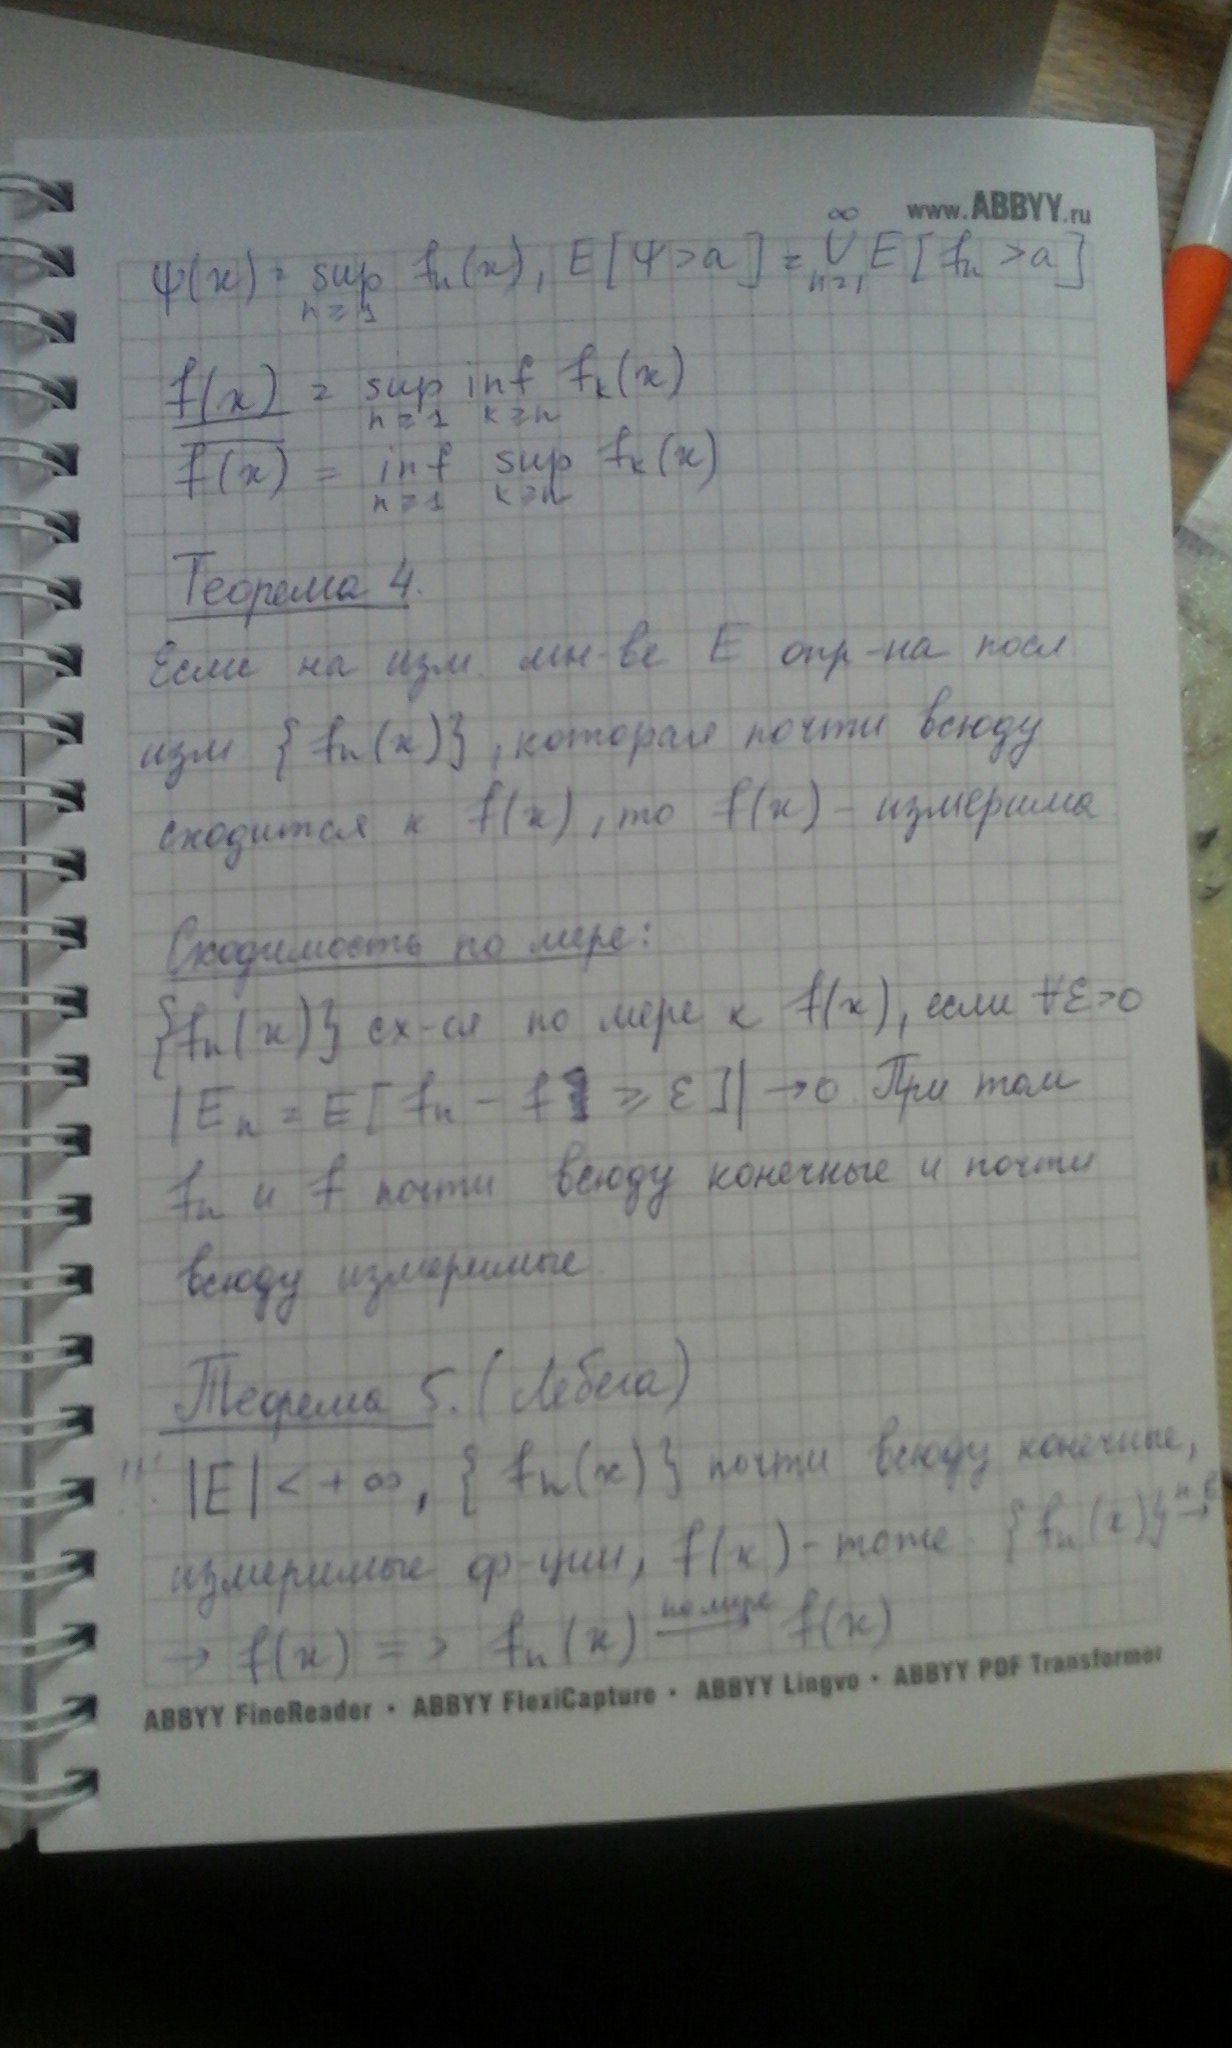 www.ABBYY.ru
ψ(x) = sup f_n(x), E[ψ>a] = ∞ ∪ n=1 E[f_n >a]
n≥1
f(x) = sup inf f_k(x)
n≥1 k≥n
f(x) = inf sup f_k(x)
n≥1 k≥n
Теорема 4.
Если на изм. мн-ве E опр-на посл
изм {f_n(x)}, которая почти всюду
сходится к f(x), то f(x) - измерима
Сходимость по мере:
{f_n(x)} сх-ся по мере к f(x), если ∀ε>0
|E_n = E[f_n - f| ≥ ε]| → 0. При том
f_n и f почти всюду конечные и почти
всюду измеримые.
Теорема 5. (Лебега)
!!! |E| < +∞, {f_n(x)} почти всюду конечные,
измеримые ф-ции, f(x) - тоже. {f_n(x)} п.в. →
→ f(x) => f_n(x) по мере → f(x)
ABBYY FineReader • ABBYY FlexiCapture • ABBYY Lingvo • ABBYY PDF Transformer